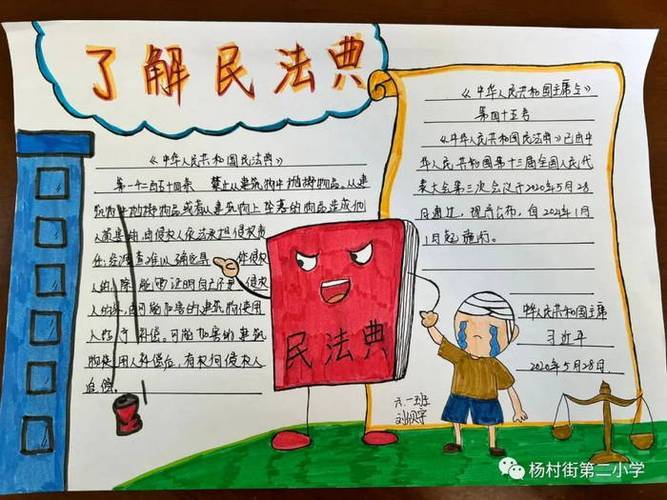 了解民法典
《中华人民共和国民法典》
第一千二百五十四条 禁止从建筑物中抛掷物品。从建
筑物中抛掷物品或者从建筑物上坠落的物品造成他
人损害的，由侵权人依法承担侵权责
任；经调查难以确定具体侵权
人的，除能够证明自己不是侵权
人的外，由可能加害的建筑物使用
人给予补偿。可能加害的建筑
物使用人补偿后，有权向侵权人
追偿。
《中华人民共和国主席令》
第四十五号
《中华人民共和国民法典》已由中
华人民共和国第十三届全国人民代
表大会第三次会议于2020年5月28
日通过，现予公布，自2021年1月
1日起施行。
中华人民共和国主席
习近平
2020年5月28日
民法典
六.一班
杨村街第二小学